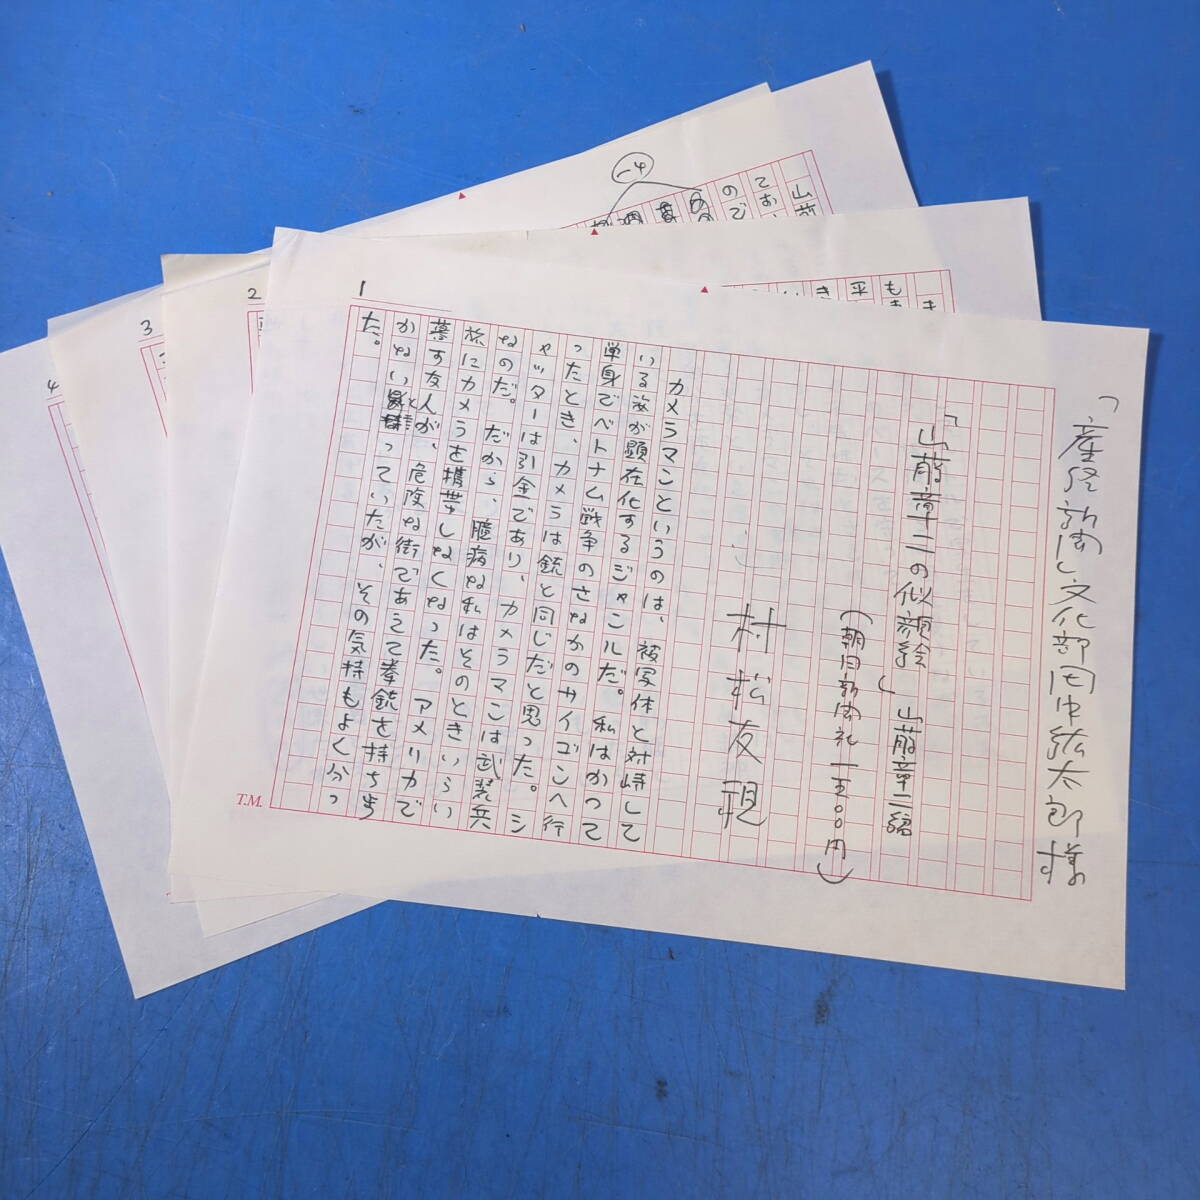 「産経新聞」文化部田中紘太郎様
「山藤章二の似顔絵」山藤章二編
(朝日新聞社 一五〇〇円)
村松友視
カメラマンというのは、被写体と対峙して
いる姿が顕在化するジャンルだ。私はかつて
単身でベトナム戦争のさなかのサイゴンへ行
ったとき、カメラは銃と同じだと思った。シ
ャッターは引金であり、カメラマンは武装兵
なのだ。だから、臆病な私はそのときいらい
旅にカメラを携帯しなくなった。アメリカで
暮す友人が、危険な街であえて拳銃を持ち歩
かないと言っていたが、その気持もよく分っ
た。
T.M.
1
2
3
4